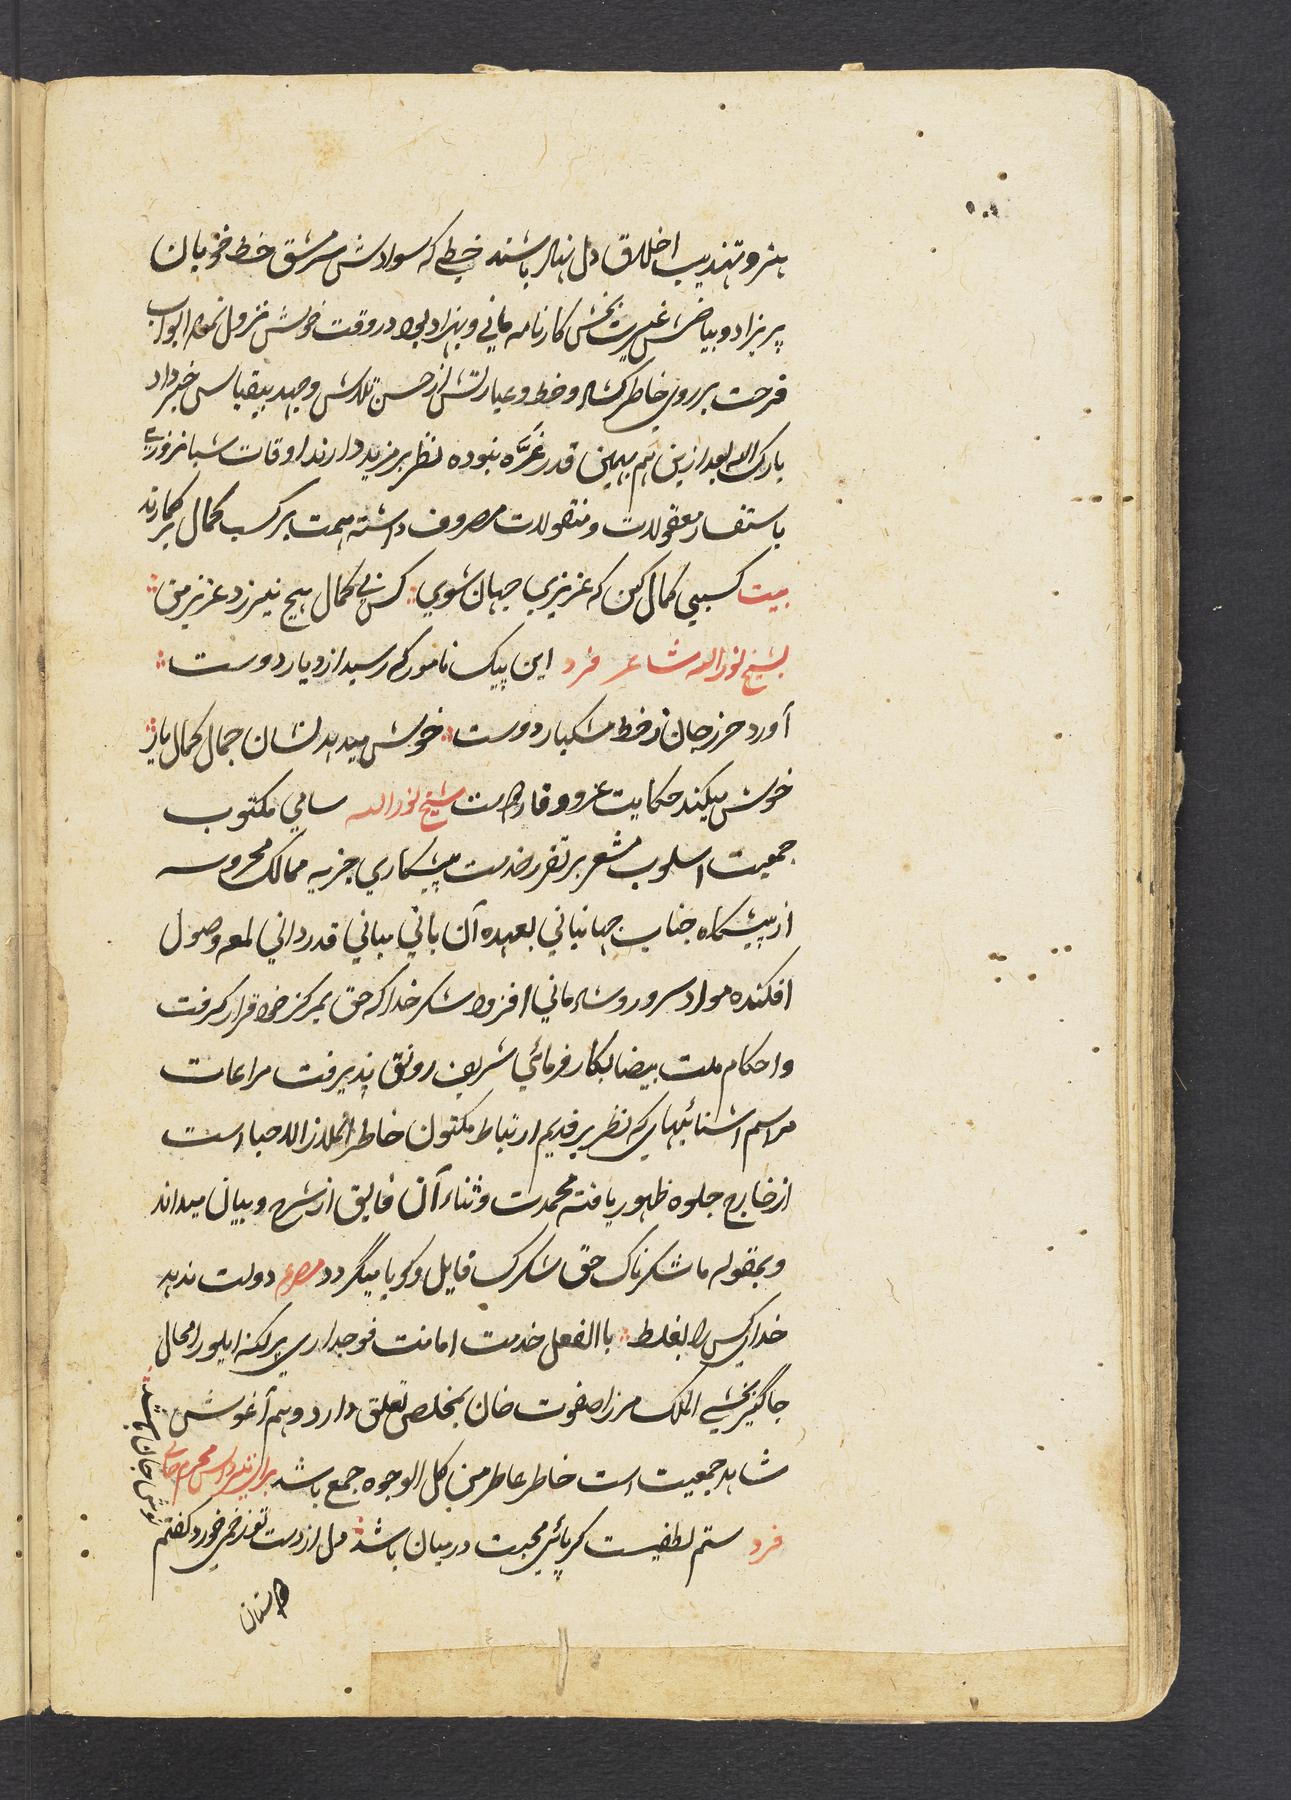 هنر و تهذیب اخلاق دل نهاد باشند خطی که سوادش سرمشق خط خوبان
پریزاد و بیاضش غیرت بخش کارنامه مانی و بهزاد بود در وقت خوش نزول نموده ابواب
فرحت بر روی خاطر کشاد و خط و عبارتش از حسن تلاش و جهد بیقیاس خبر داد
بارک الله بعد ازین هم بهمین قدر غَرَّه نبوده نظر بر مزید دارند اوقات شبانروزی
باستفسار معقولات و منقولات مصروف داشته همت بر کسب کمال برگمارند
بیت کسبی کمال کن که عزیزی جهان شوی کس بی کمال هیچ نیرزد عزیز من
بشیخ نورالله شاعر فرد این پیک نامور که رسید از دیار دوست
آورد حرز جان ز خط مشکبار دوست خوش میدهد نشان جمال کمال یار
خوش میکند حکایت عز و وقار دوست شیخ نورالله سامی مکتوب
جمعیت اسلوب مشعر بر تقرر خدمت پیشکاری جزیه ممالک محروسه
از پیشگاه جناب جهانبانی بعهده آن بانی مبانی قدردانی لمعه وصول
افکنده مواد سرور و شادمانی افزود شکر خدا که حق بمرکز خود قرار گرفت
و احکام ملت بیضا بکارفرمائی شریف رونق پذیرفت مراعات
مراسم آشنائیهای که نظر بر قدیم ارتباط مکنون خاطر اخلاص است
از خارج جلوه ظهور یافته محمدت و ثناء آن فایق از شرح و بیان میداند
و بمقوله ما شکرناک حق شکرک قایل و گویا میگردد مصرعه دولت ندهد
خدای کس را بغلط باالفعل خدمت امانت فوجداری پرکنه محال
جاگیر بخشی الملک مرزا صفوت خان بمخلص تعلق دارد و هم آغوش
شاهد جمعیت است خاطر عاطر من کل الوجوه جمع باشد برای
فرد ستم لطفیست گر پائی محبت درمیان باشد دل از دست زخمی خورد گفتم
نوش جان باشد
دوستان